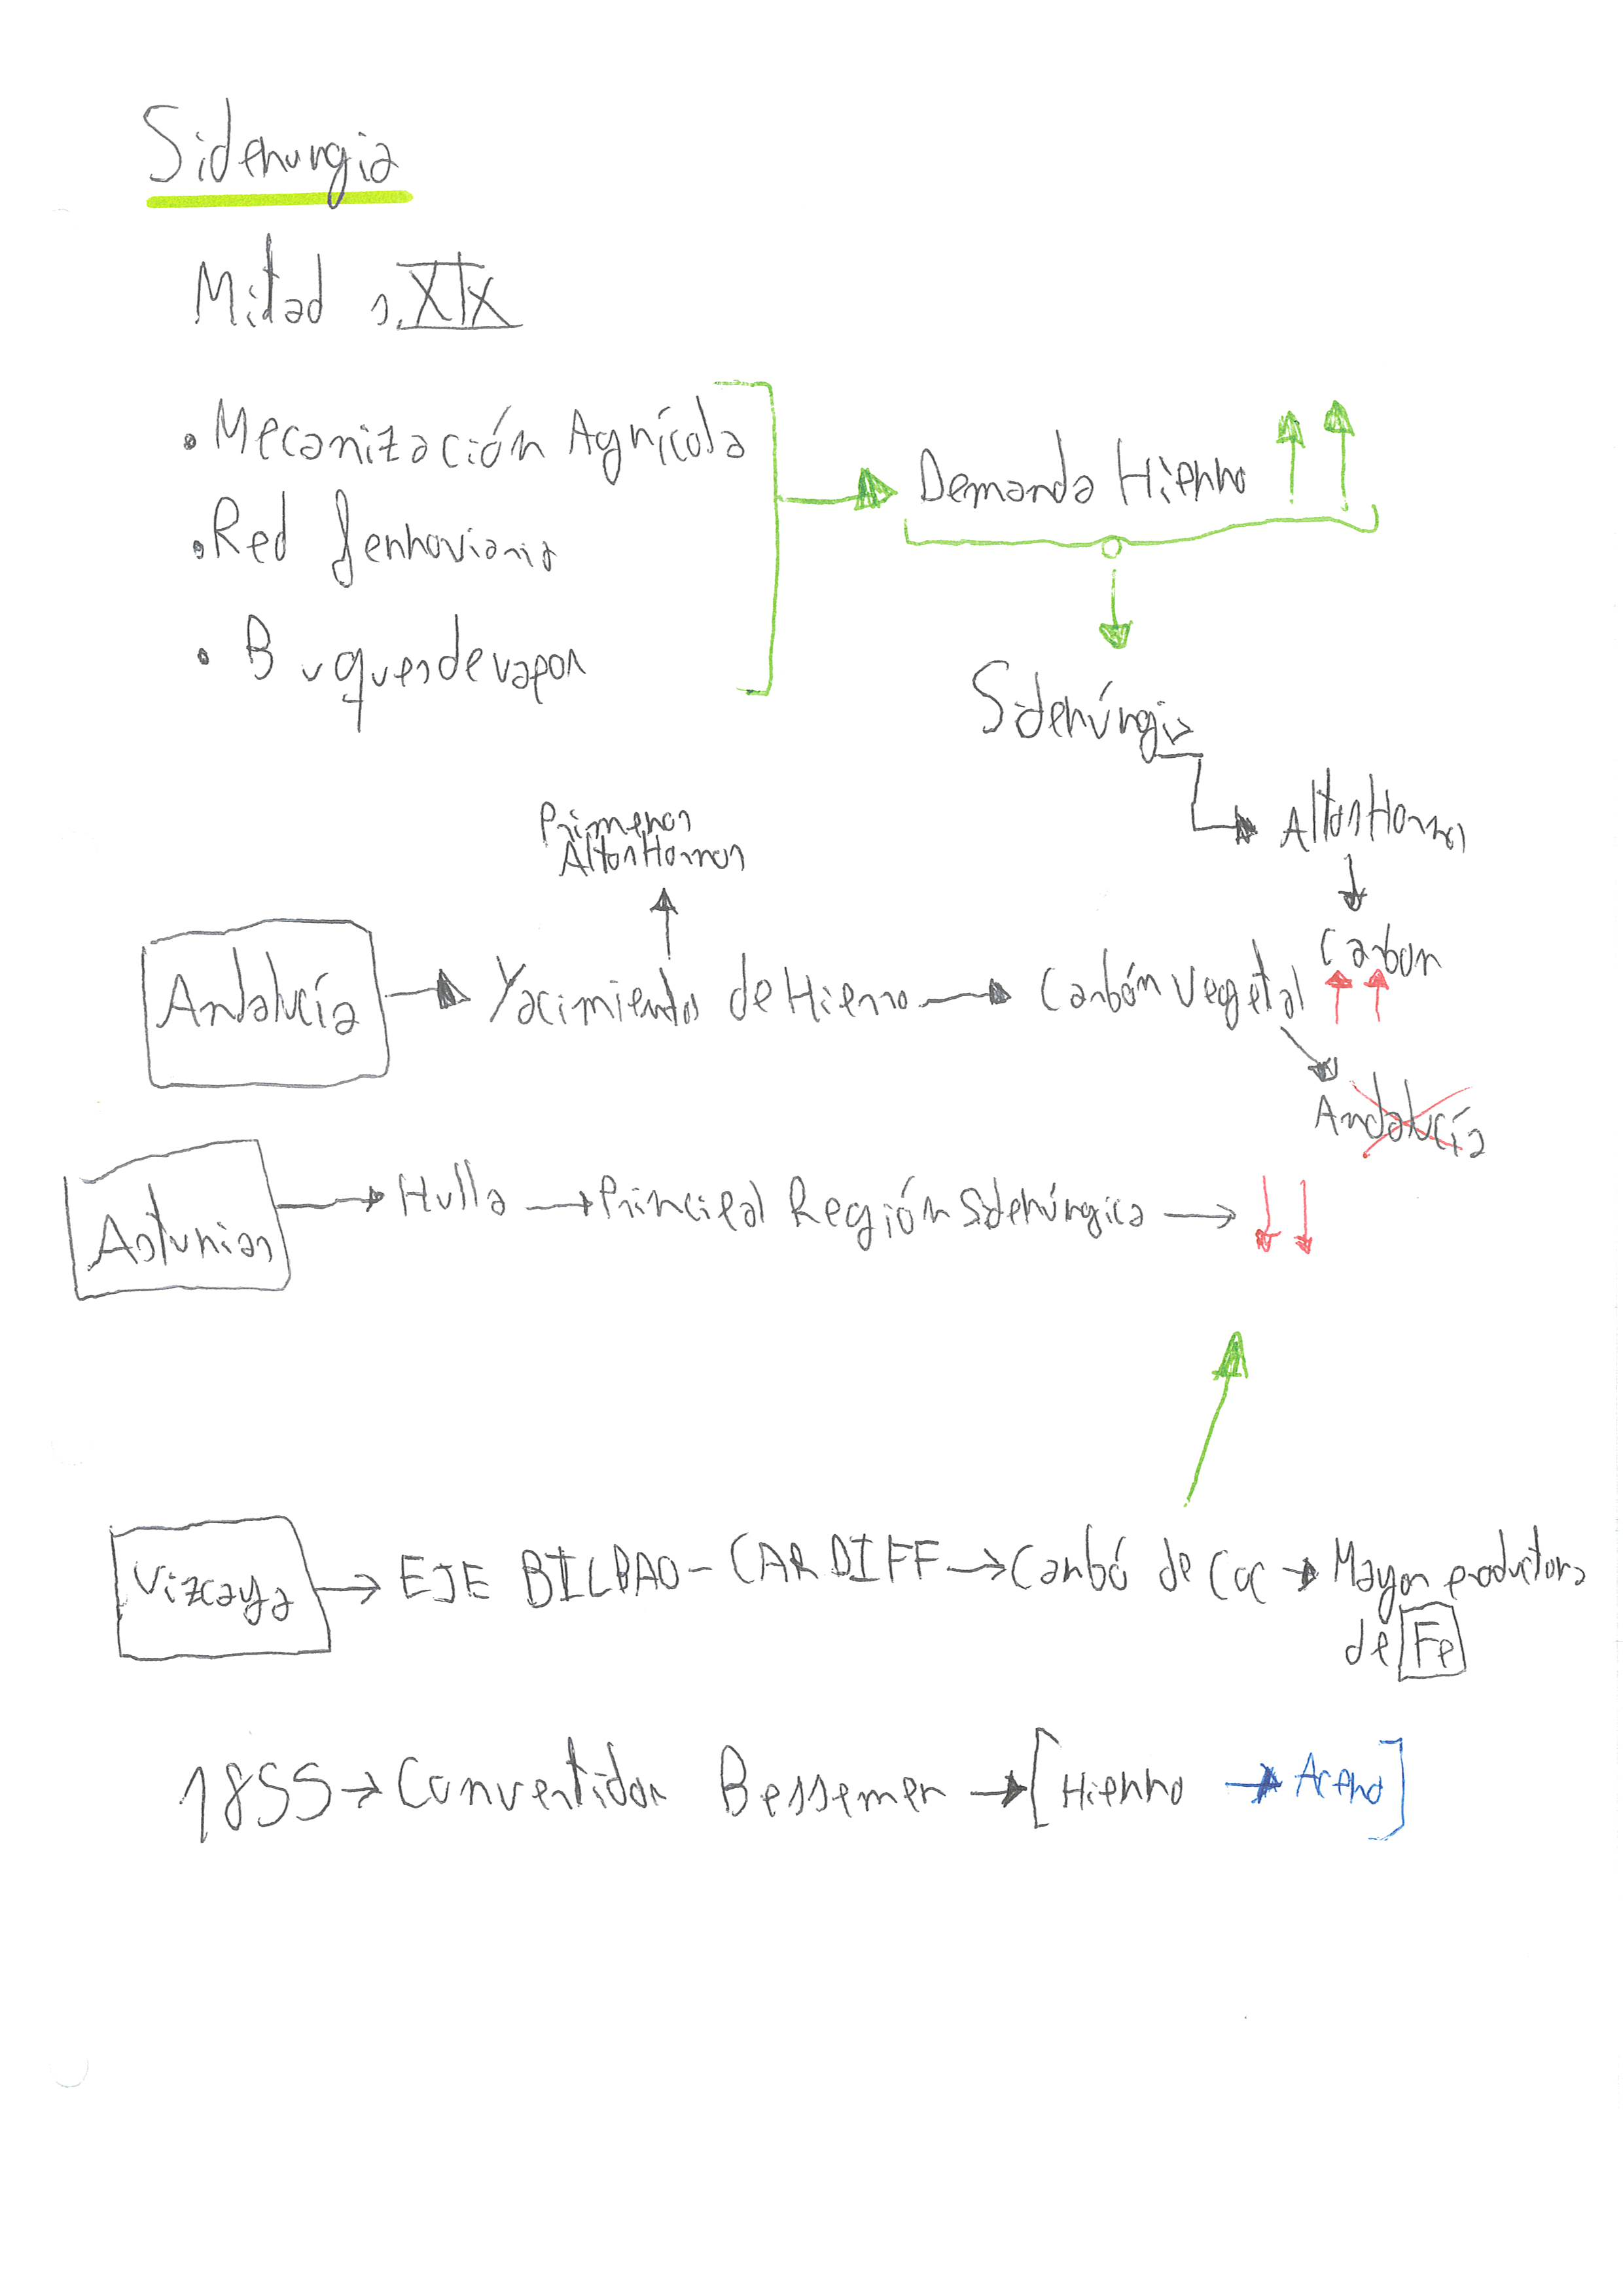 Siderurgia
Mitad s.XIX
• Mecanización Agrícola
• Red ferroviaria
• Buques de vapor
Demanda Hierro ↑ ↑
Siderúrgia
Altos Hornos
Carbon
Primeros
Altos Hornos
Andalucía → Yacimientos de Hierro → Carbón Vegetal
Andalucía
Asturias → Hulla → Principal Región Siderúrgica → ↓↓
Vizcaya → EJE BILBAO - CARDIFF → Carbó de Coc → Mayor productora
de Fe
1855 → Convertidor Bessemer → [Hierro → Acero]